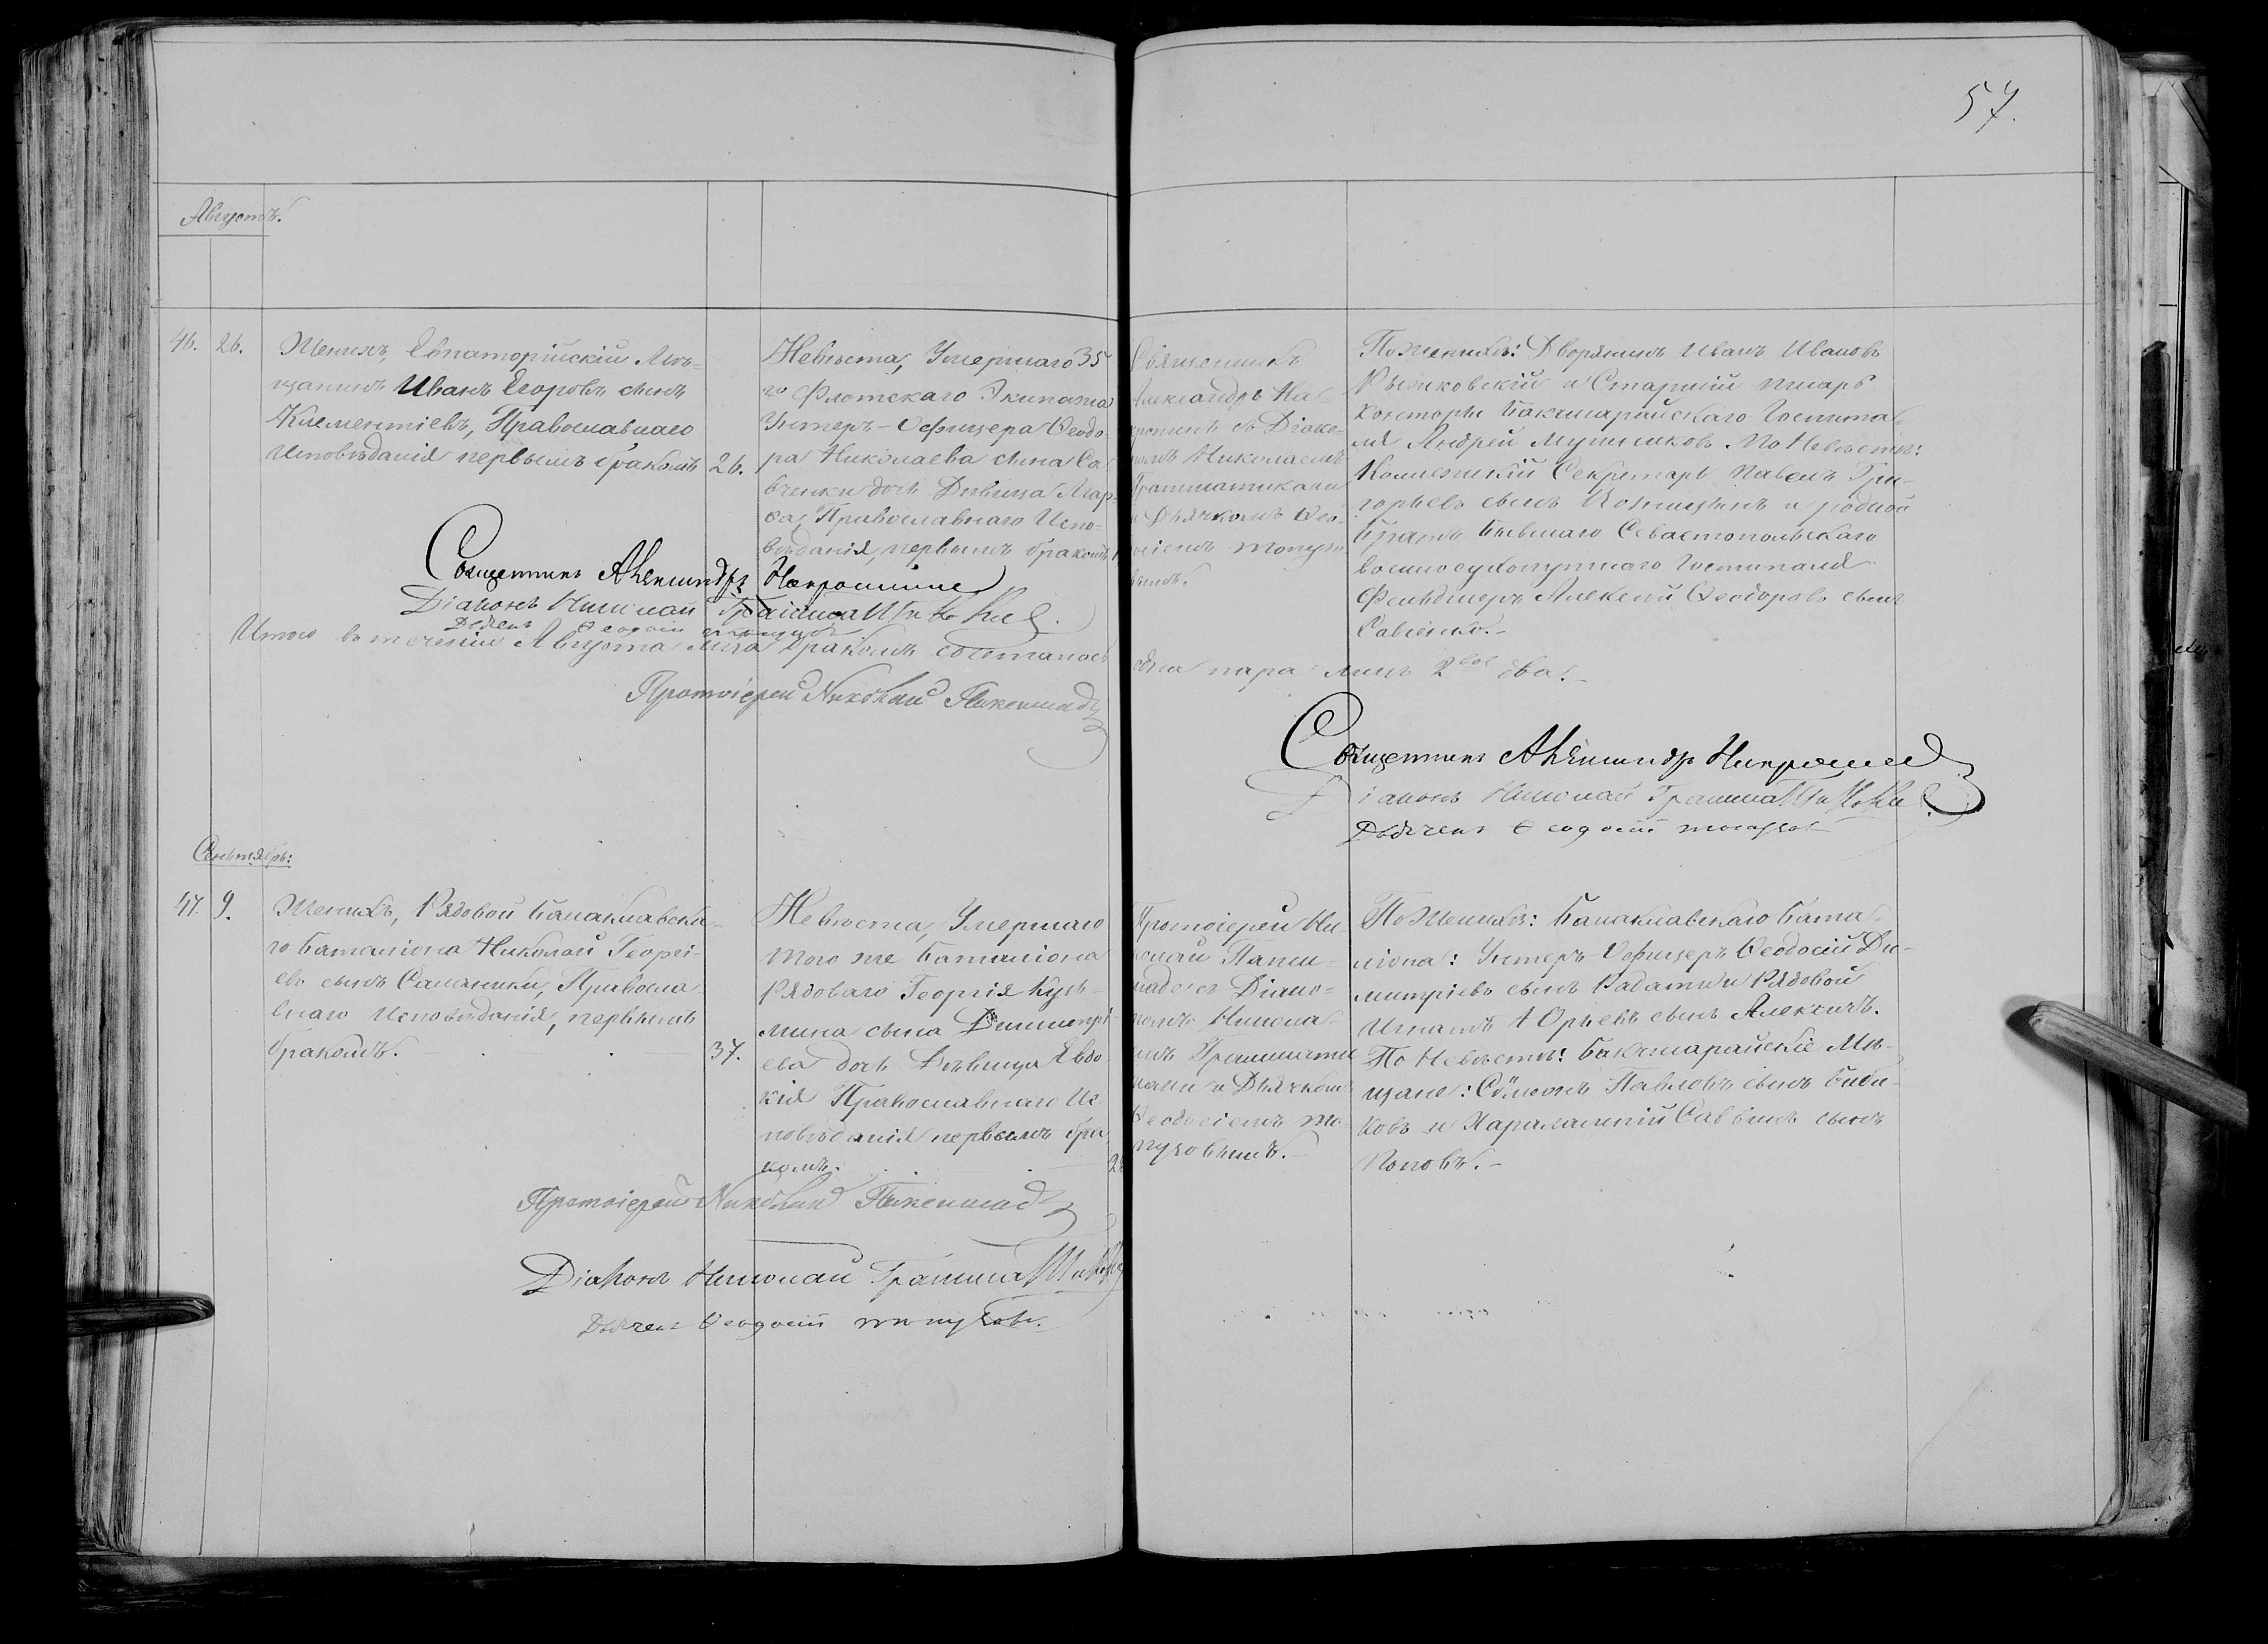 57.
Августъ.
46. 26.
Женихъ, Евпаторійскій Мѣ-
щанинъ Иванъ Егоровъ сынъ
Клементіевъ, Православнаго
Исповѣданія первымъ бракомъ
26.
Невѣста, Умершаго 35
го Флотскаго Экипажа
Унтеръ-Офицера Ѳеодо-
ра Николаева сына Са
вченки дочь Дѣвица Мар-
ѳа, Православнаго Испо-
вѣданія, первымъ бракомъ
Священникъ
Александръ На-
кропинъ съ Діако-
номъ Николаемъ
Грамматикати
и Дьячкомъ Ѳео-
досіемъ Топузо
вымъ.
По Женихѣ: Дворянинъ Иванъ Ивановъ
Рыжковскій и Старшій писарь
Конторы Бакчисарайскаго Госпита-
ля Андрей Мушниковъ. По Невѣстѣ:
Коллежскій Секретарь Павелъ Гри-
горьевъ сынъ и родной
Братъ Бывшаго Севастопольскаго
военносухопутнаго Госпиталя
Фельдшеръ Алексѣй Ѳеодоровъ сынъ
Савченко.-
Священникъ Александръ
Діаконъ Николай
Дьячекъ Ѳеодосій
Итого въ теченіи Августа М-ца Бракомъ состалось
одна пара лицъ 2вое два.-
Протоіерей Николай
Священникъ Александръ
Діаконъ Николай
Дьячекъ Ѳеодосій Топузовъ
Сентябрь:
47. 9.
Женихъ, Рядовой Балаклавска-
го Баталіона Николай Георгі-
евъ сынъ Саланики, Правосла
внаго Исповѣданія, первымъ
бракомъ.
37.
Невѣста, Умершаго
того же Баталіона
Рядоваго Георгія Кузь-
мина сына Димитрі-
ева дочь Дѣвица Евдо
кія Православнаго Ис
повѣданія первымъ бра
комъ.
Протоіерей Ни
колай
съ Діако-
номъ Никола-
емъ Граммати
кати и Дьячкомъ
Ѳеодосіемъ То
пузовымъ.-
По Женихѣ: Балаклавскаго Бата-
ліона: Унтеръ-Офицеръ Ѳеодосій Ди-
митріевъ сынъ и Рядовой
Игнатъ Юрьевъ сынъ Алексичъ.
По Невѣстѣ: Бакчисарайскіе Мѣ-
щане: Сѵмеонъ Павловъ сынъ Биби-
ковъ и Харалампій Саввинъ сынъ
Поповъ.-
Протоіерей Николай
Діаконъ Николай
Дьячекъ Ѳеодосій Топузовъ.